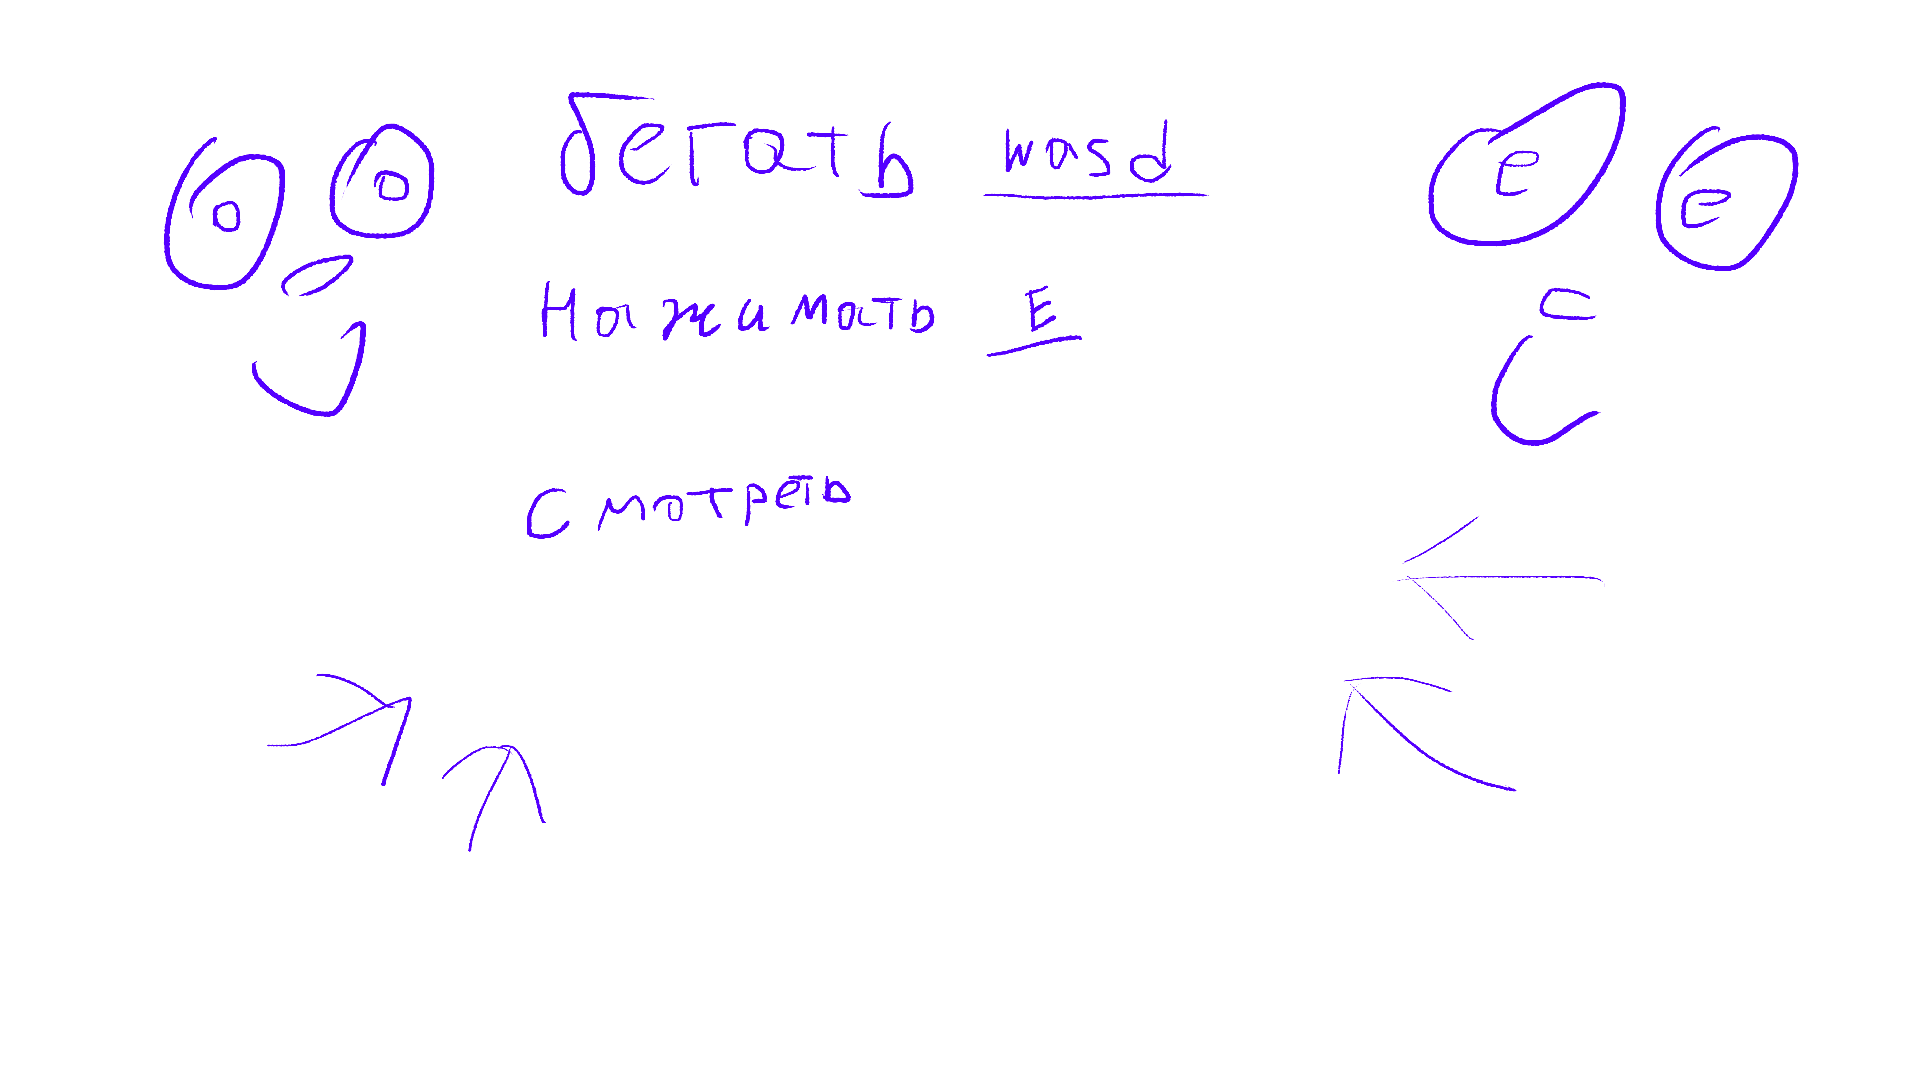 бегать wasd
Нажимать E
Смотреть